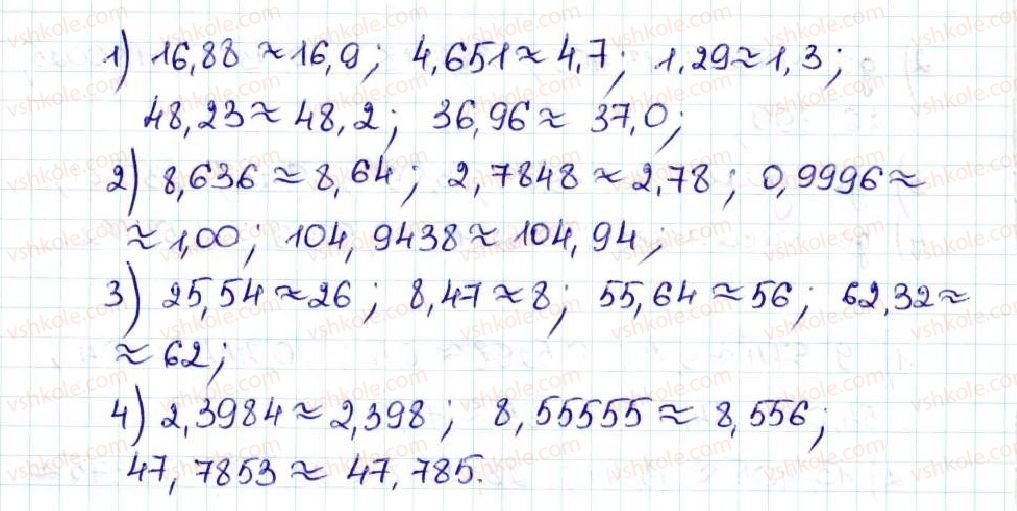 1) 16,88 ≈ 16,9; 4,651 ≈ 4,7; 1,29 ≈ 1,3;
48,23 ≈ 48,2; 36,96 ≈ 37,0;
2) 8,636 ≈ 8,64; 2,7848 ≈ 2,78; 0,9996 ≈
≈ 1,00; 104,9438 ≈ 104,94;
3) 25,54 ≈ 26; 8,47 ≈ 8; 55,64 ≈ 56; 62,32 ≈
≈ 62;
4) 2,3984 ≈ 2,398; 8,55555 ≈ 8,556;
47,7853 ≈ 47,785.
vshkole.com